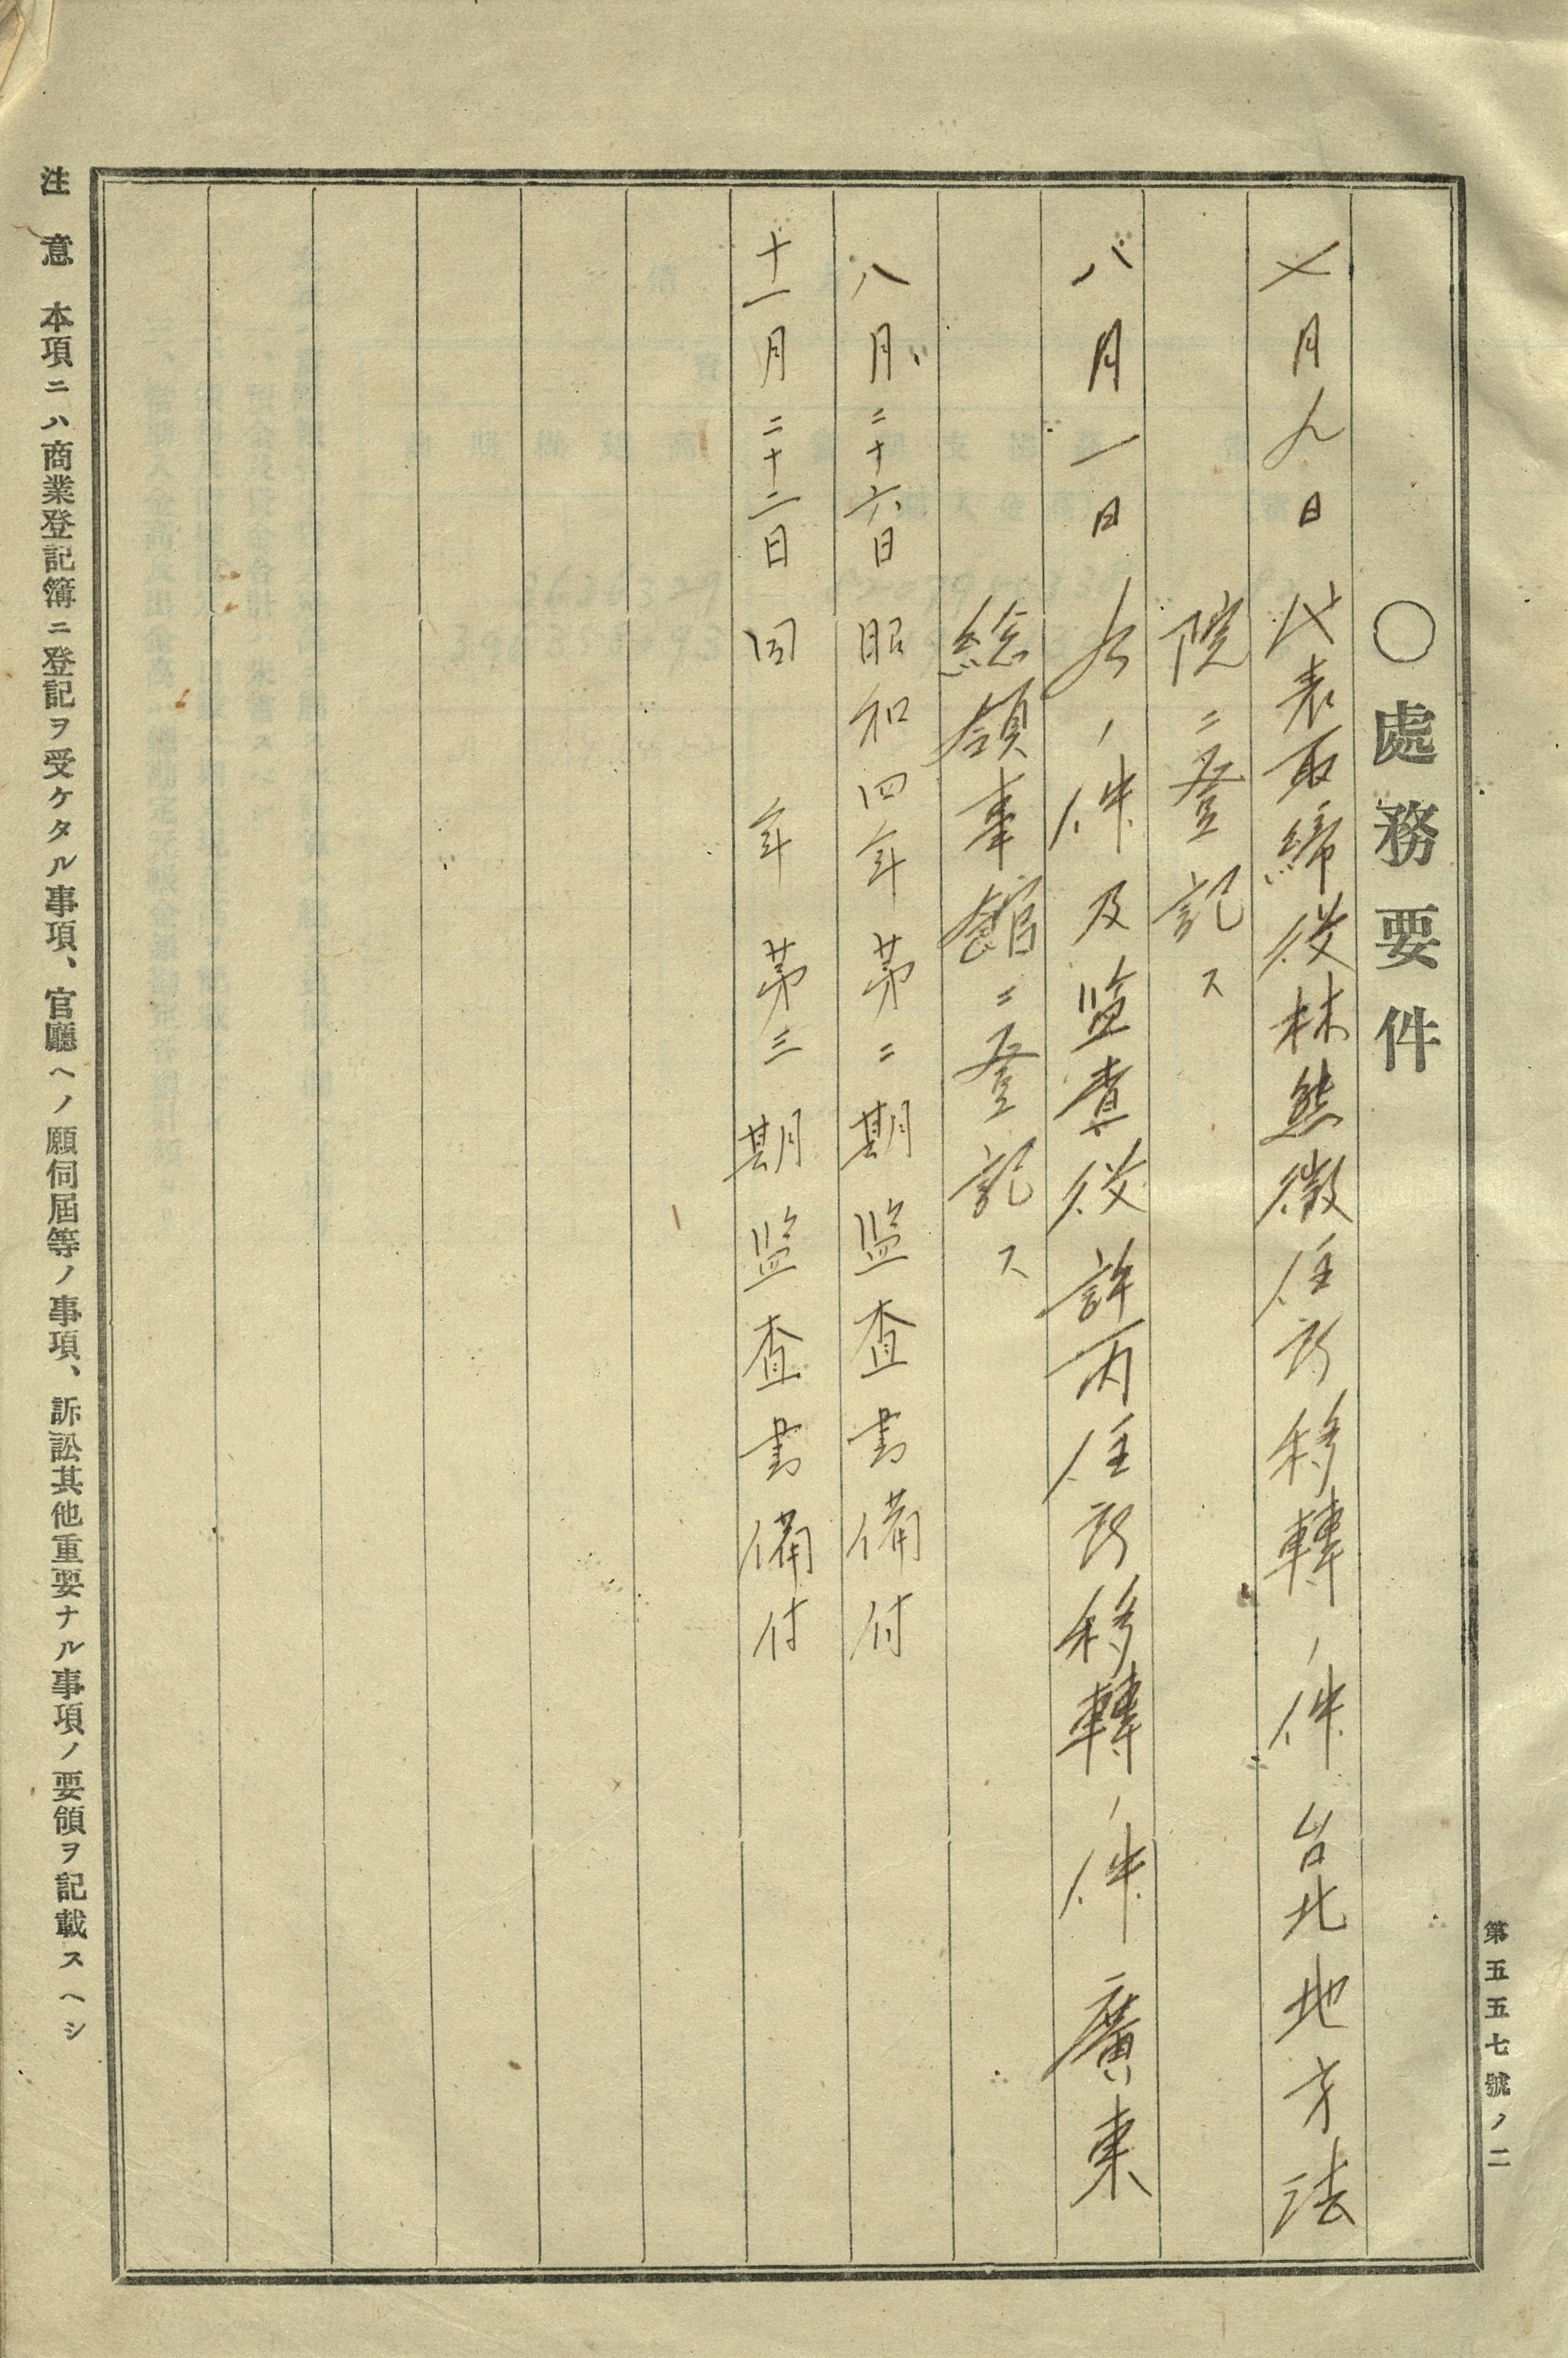 第五五七號ノ二
○處務要件
七月九日 代表取締役林熊徴住所移轉ノ件台北地方法
院ニ登記ス
八月一日 仝ノ件及監査役許丙住所移轉ノ件廣東
総領事館ニ登記ス
八月二十六日 昭和四年第二期監査書備付
十一月二十二日 同年第三期監査書備付
注意 本項ニハ商業登記簿ニ登記ヲ受ケタル事項、官廳ヘノ願伺屆等ノ事項、訴訟其他重要ナル事項ノ要領ヲ記載スヘシ